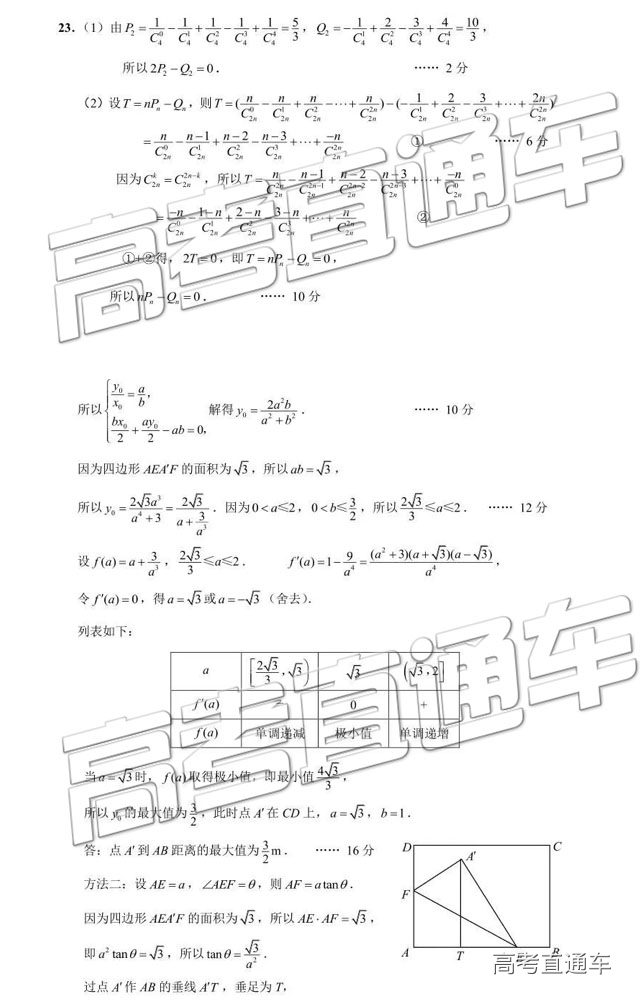 23.（1）由P₂ = 1/C₄⁰ − 1/C₄¹ + 1/C₄² − 1/C₄³ + 1/C₄⁴ = 5/3，Q₂ = −1/C₄¹ + 2/C₄² − 3/C₄³ + 4/C₄⁴ = 10/3，
所以2P₂ − Q₂ = 0． …… 2 分
（2）设T = nPₙ − Qₙ，则T = (n/C₂ₙ⁰ − n/C₂ₙ¹ + n/C₂ₙ² − ⋯ + n/C₂ₙ²ⁿ) − (−1/C₂ₙ¹ + 2/C₂ₙ² − 3/C₂ₙ³ + ⋯ + 2n/C₂ₙ²ⁿ)
= n/C₂ₙ⁰ − (n−1)/C₂ₙ¹ + (n−2)/C₂ₙ² − (n−3)/C₂ₙ³ + ⋯ + (−n)/C₂ₙ²ⁿ ① …… 6 分
因为C₂ₙᵏ = C₂ₙ²ⁿ⁻ᵏ，所以T = n/C₂ₙ²ⁿ − (n−1)/C₂ₙ²ⁿ⁻¹ + (n−2)/C₂ₙ²ⁿ⁻² − (n−3)/C₂ₙ²ⁿ⁻³ + ⋯ + (−n)/C₂ₙ⁰
= (−n)/C₂ₙ⁰ − (1−n)/C₂ₙ¹ + (2−n)/C₂ₙ² − (3−n)/C₂ₙ³ + ⋯ + n/C₂ₙ²ⁿ ②
①+②得，2T = 0，即T = nPₙ − Qₙ = 0，
所以nPₙ − Qₙ = 0． …… 10 分
高考直通车
所以{ y₀/x₀ = a/b， bx₀/2 + ay₀/2 − ab = 0， 解得y₀ = 2a²b/(a² + b²)． …… 10 分
因为四边形 AEA′F 的面积为√3，所以ab = √3，
所以y₀ = 2√3a³/(a⁴ + 3) = 2√3/(a + 3/a³)．因为0 < a ≤ 2，0 < b ≤ 3/2，所以2√3/3 ≤ a ≤ 2． …… 12 分
设f(a) = a + 3/a³，2√3/3 ≤ a ≤ 2． f′(a) = 1 − 9/a⁴ = (a² + 3)(a + √3)(a − √3)/a⁴，
令f′(a) = 0，得a = √3或a = −√3（舍去）．
列表如下：
a [2√3/3，√3) √3 (√3，2]
f′(a) − 0 +
f(a) 单调递减 极小值 单调递增
高考直通车
当a = √3时，f(a)取得极小值，即最小值4√3/3，
所以y₀的最大值为3/2，此时点A′在CD上，a = √3，b = 1．
答：点A′到AB距离的最大值为3/2 m． …… 16 分
方法二：设AE = a，∠AEF = θ，则AF = a tanθ．
因为四边形AEA′F的面积为√3，所以AE·AF = √3，
即a² tanθ = √3，所以tanθ = √3/a²．
过点A′作AB的垂线A′T，垂足为T，
D C
A′
F
A T B
高考直通车